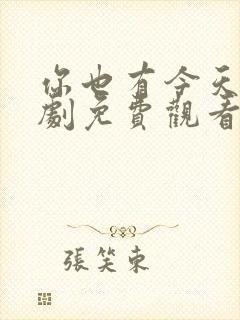 你也有今天
劇免費觀看
張笑東